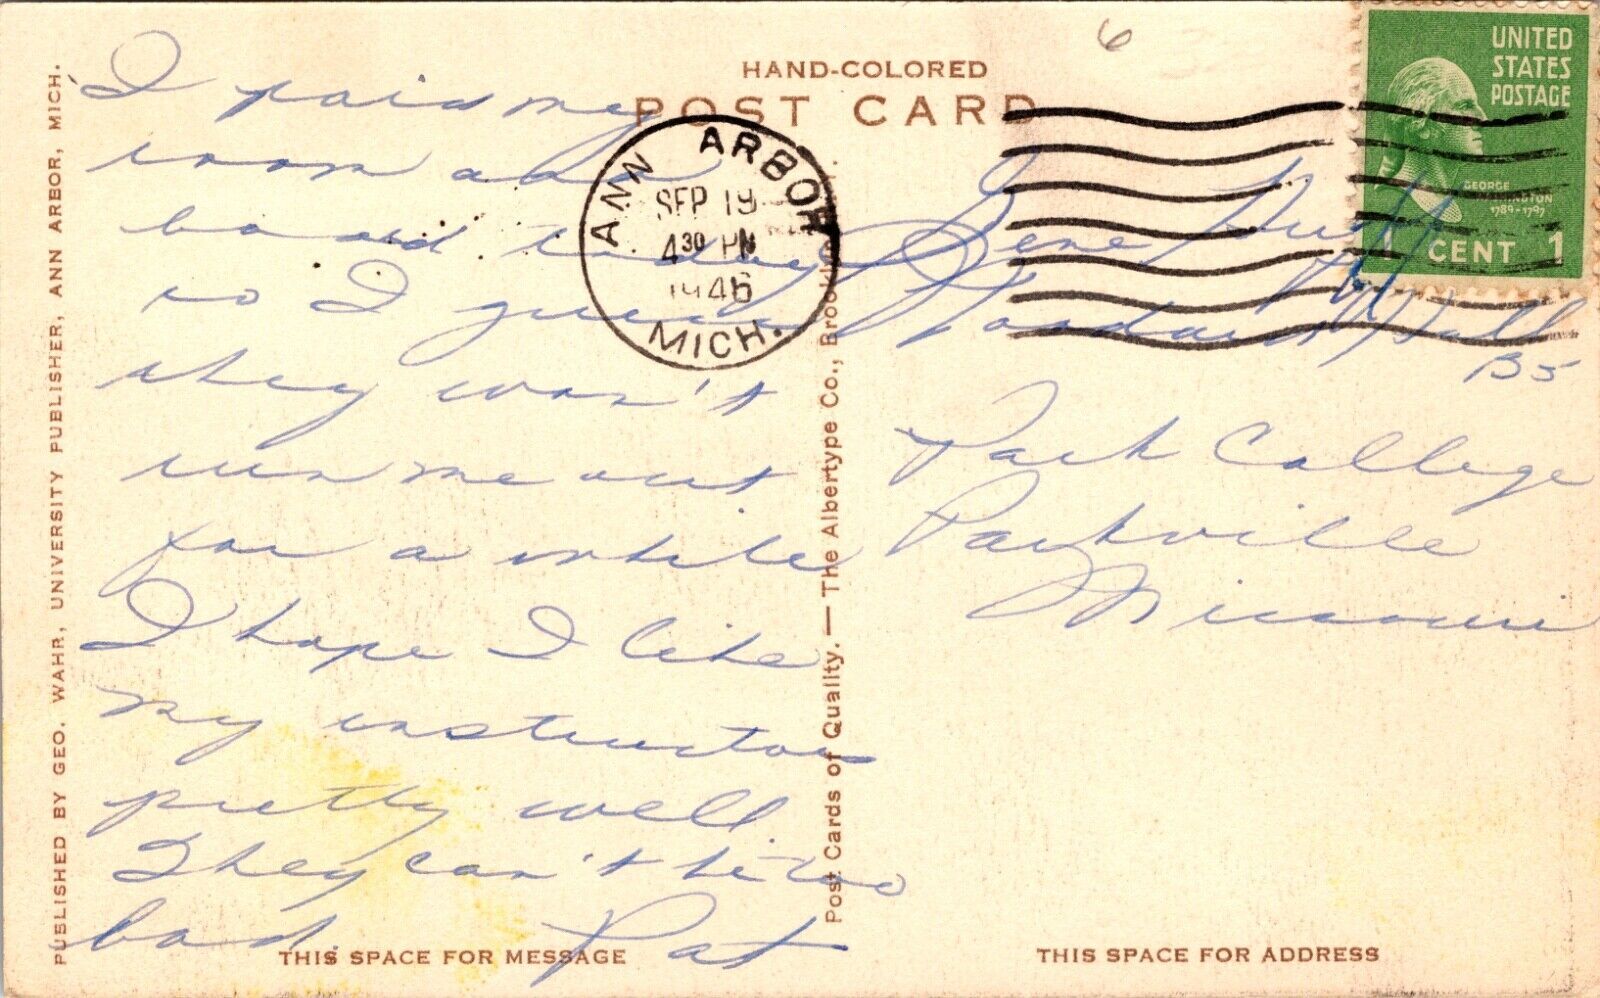 6
HAND-COLORED
POST CARD
UNITED
STATES
POSTAGE
GEORGE
WASHINGTON
1789-1797
CENT 1
ANN ARBOR
SEP 19
4 30 PM
1946
MICH.
I paid my
room and
board today
so I guess
they won't
run me out
for a while
I hope I like
my instructors
pretty well.
They can't be too
bad. Pat
Gene Huff
Woodward Hall
B5
Park College
Parkville
Missouri
PUBLISHED BY GEO. WAHR, UNIVERSITY PUBLISHER, ANN ARBOR, MICH.
Post Cards of Quality. — The Albertype Co., Brooklyn,
THIS SPACE FOR MESSAGE
THIS SPACE FOR ADDRESS